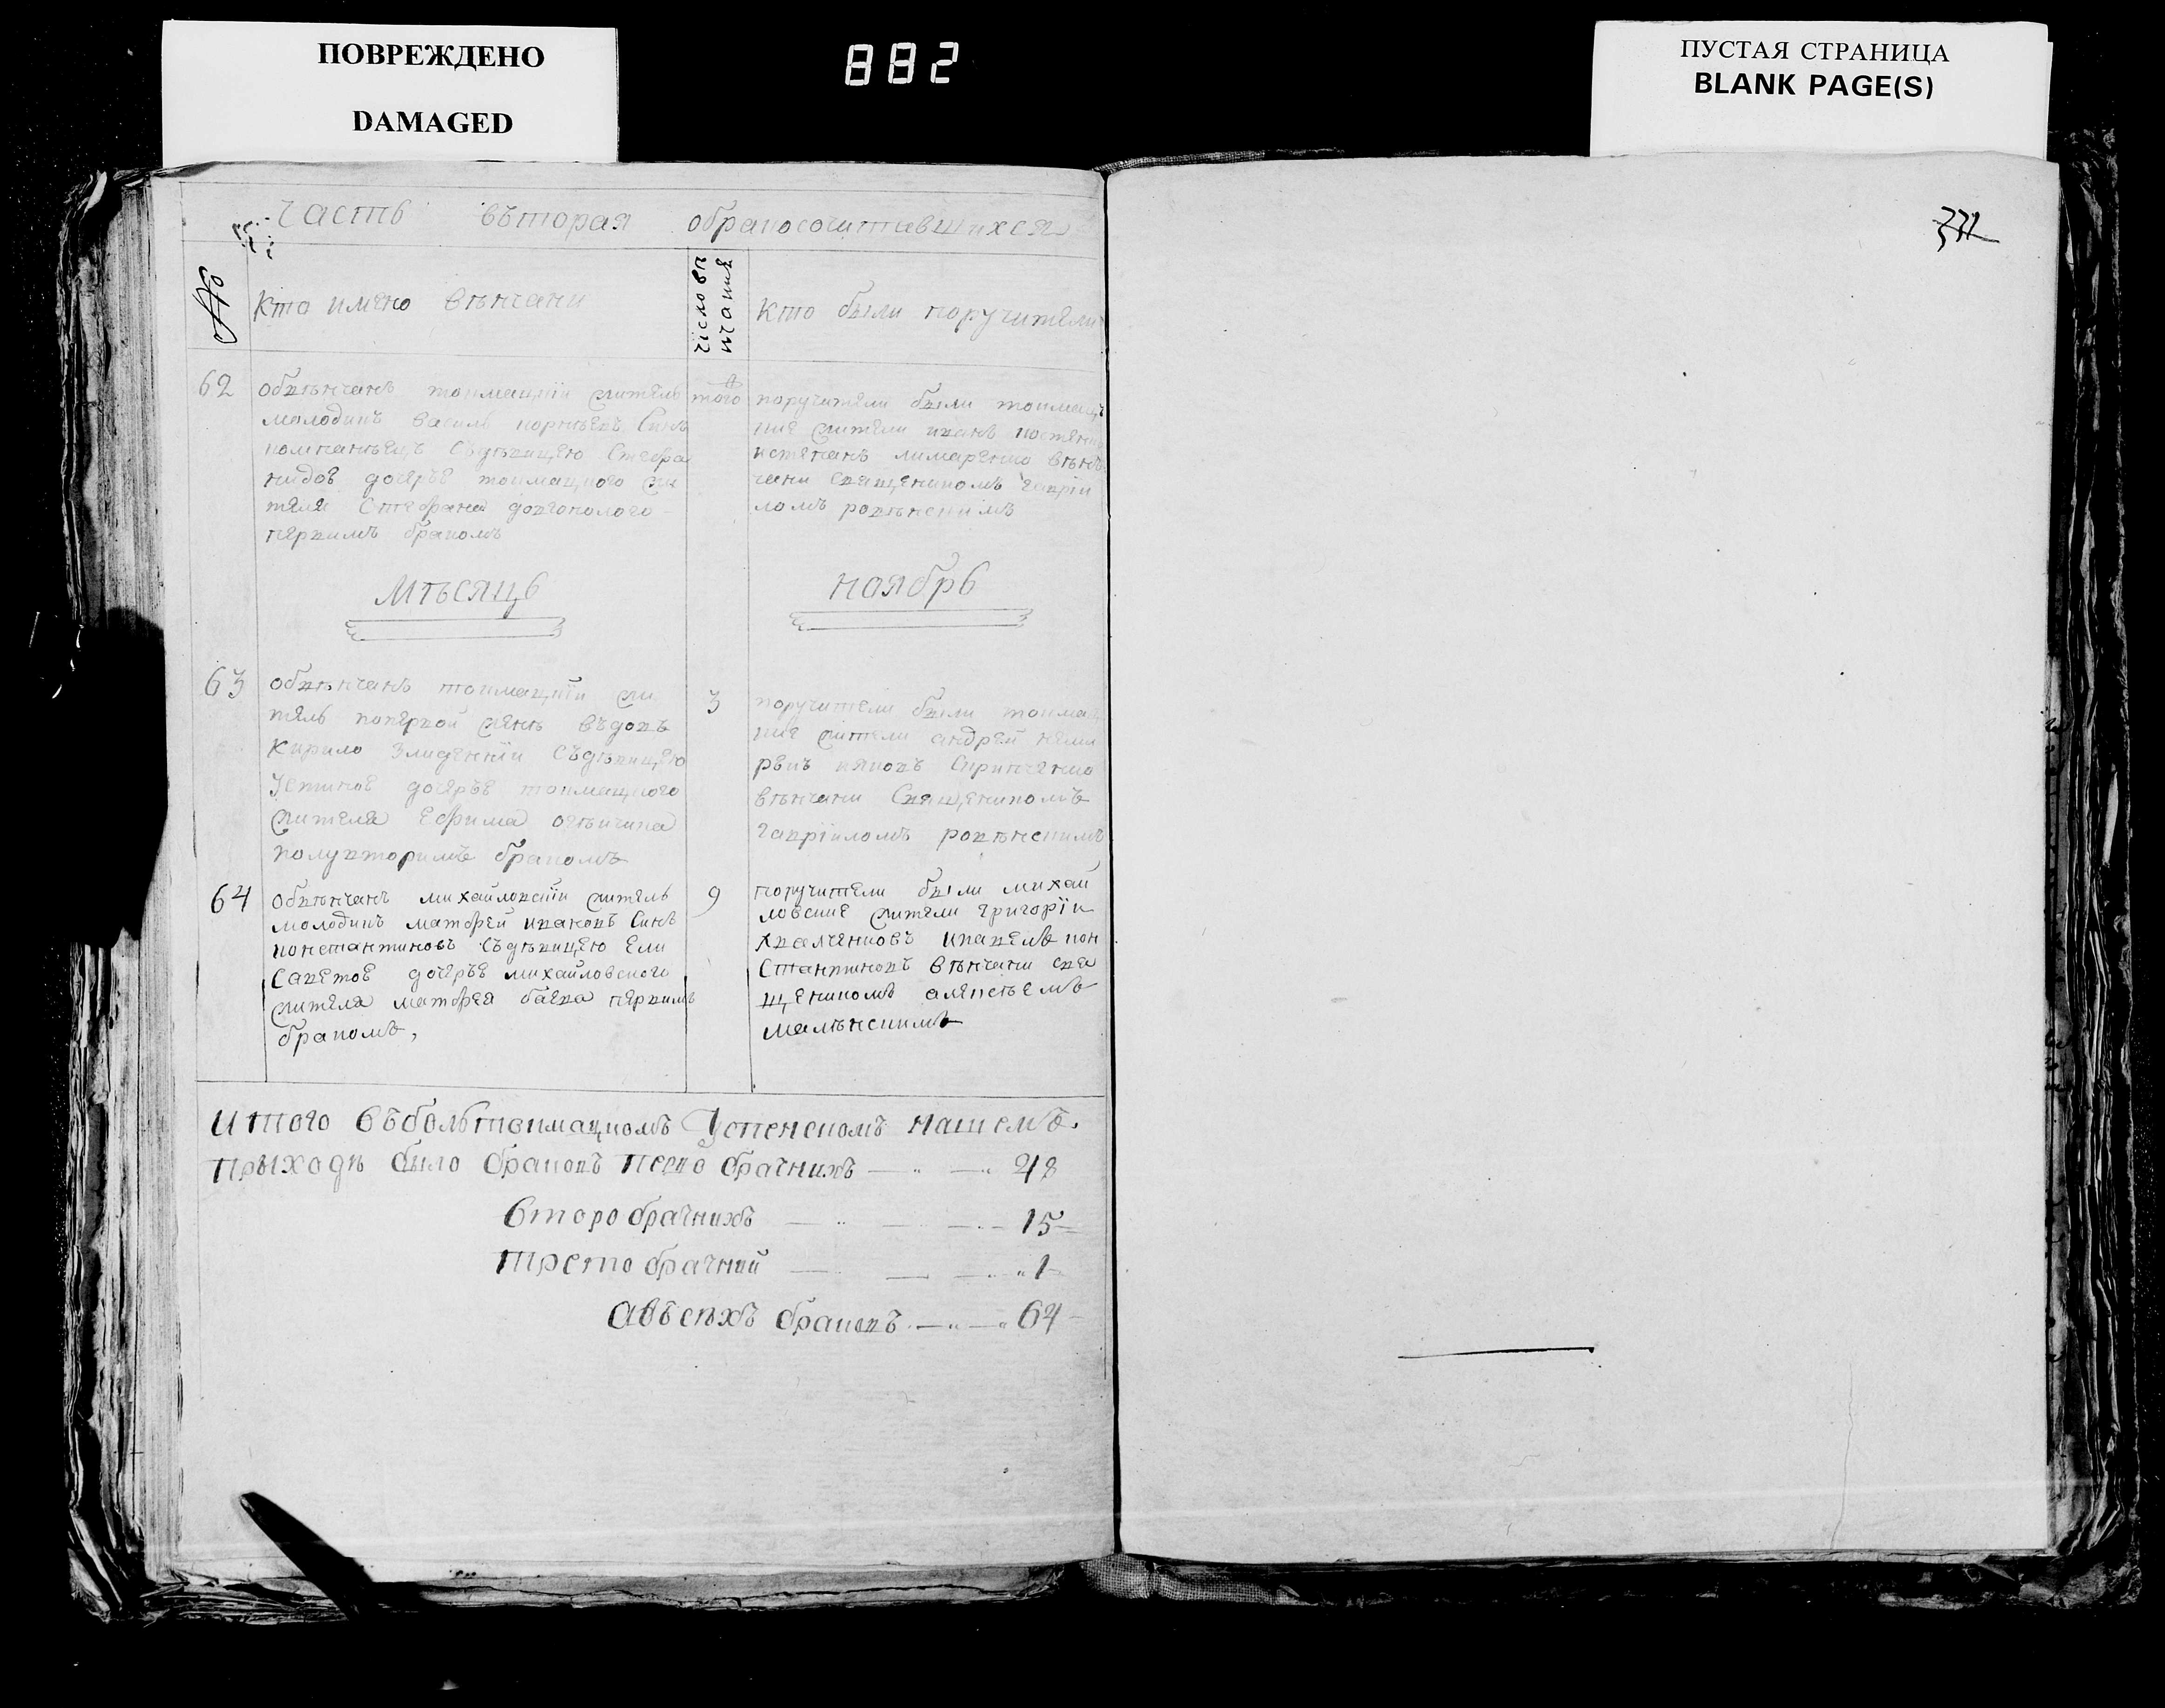 ПОВРЕЖДЕНО
DAMAGED
882
ПУСТАЯ СТРАНИЦА
BLANK PAGE(S)
331
Часть въторая обракосочитавшихся
№
Кто имено вѣнчани
число вѣ
нчания
Кто были поручители
62
обвѣнчанъ токмацкїи житель
молодикъ василь корнѣевъ Синъ
компанѣецъ Съдѣвицею Стефа
нидое дочерѣе токмацкого жи
теля Стефана довгополого
первимъ бракомъ
того
поручители были токмац
кие жители иванъ костенко
истепанъ лимаренко вѣн
чани священикомъ гаврїи
ломъ ровѣнскимъ
Мѣсяцъ ноябрь
63
обвѣнчанъ токмацкїи жи
тель попервой женѣ въдовъ
Кирило Злиденнїи Съдѣвицею
Устиное дочерѣе токмацкого
жителя Ефима
полувторимъ бракомъ
3
поручители были токмац
кие жители андрей неми
ровъ Скрипченко
вѣнчани Священикомъ
гаврїиломъ ровѣнскимъ
64
обвѣнчанъ михайловскїи житель
молодикъ матфей ивановъ Синъ
константиновъ Съдѣвицею Ели
Саветое дочерѣе михайловского
жителя матфея баева первимъ
бракомъ,
9
поручители были михай
ловские жители григорїи
хвалченковъ ипавелъ кон
Стантиновъ вѣнчани свя
щеникомъ алексѣемъ
малѣнскимъ
Итого въбольтокмацкомъ Успенскомъ нашемъ
Прыходѣ было браковъ перво брачнихъ 48
Второ брачнихъ 15
трето брачний 1
Авъсѣхъ браковъ 64